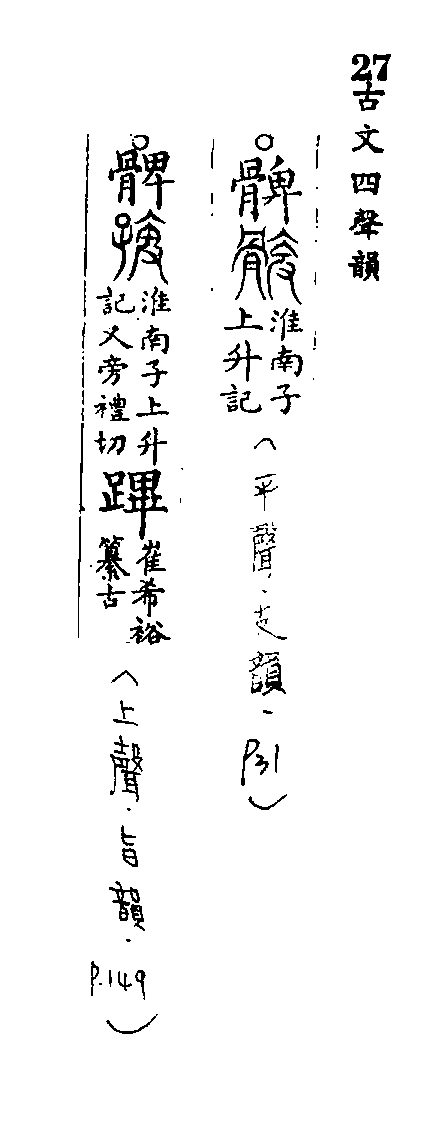 27 古文四聲韻
髀 淮南子上升記
(平聲．支韻．P31)
髀 淮南子上升記又旁禮切 崔希裕纂古
(上聲．旨韻．P.149)